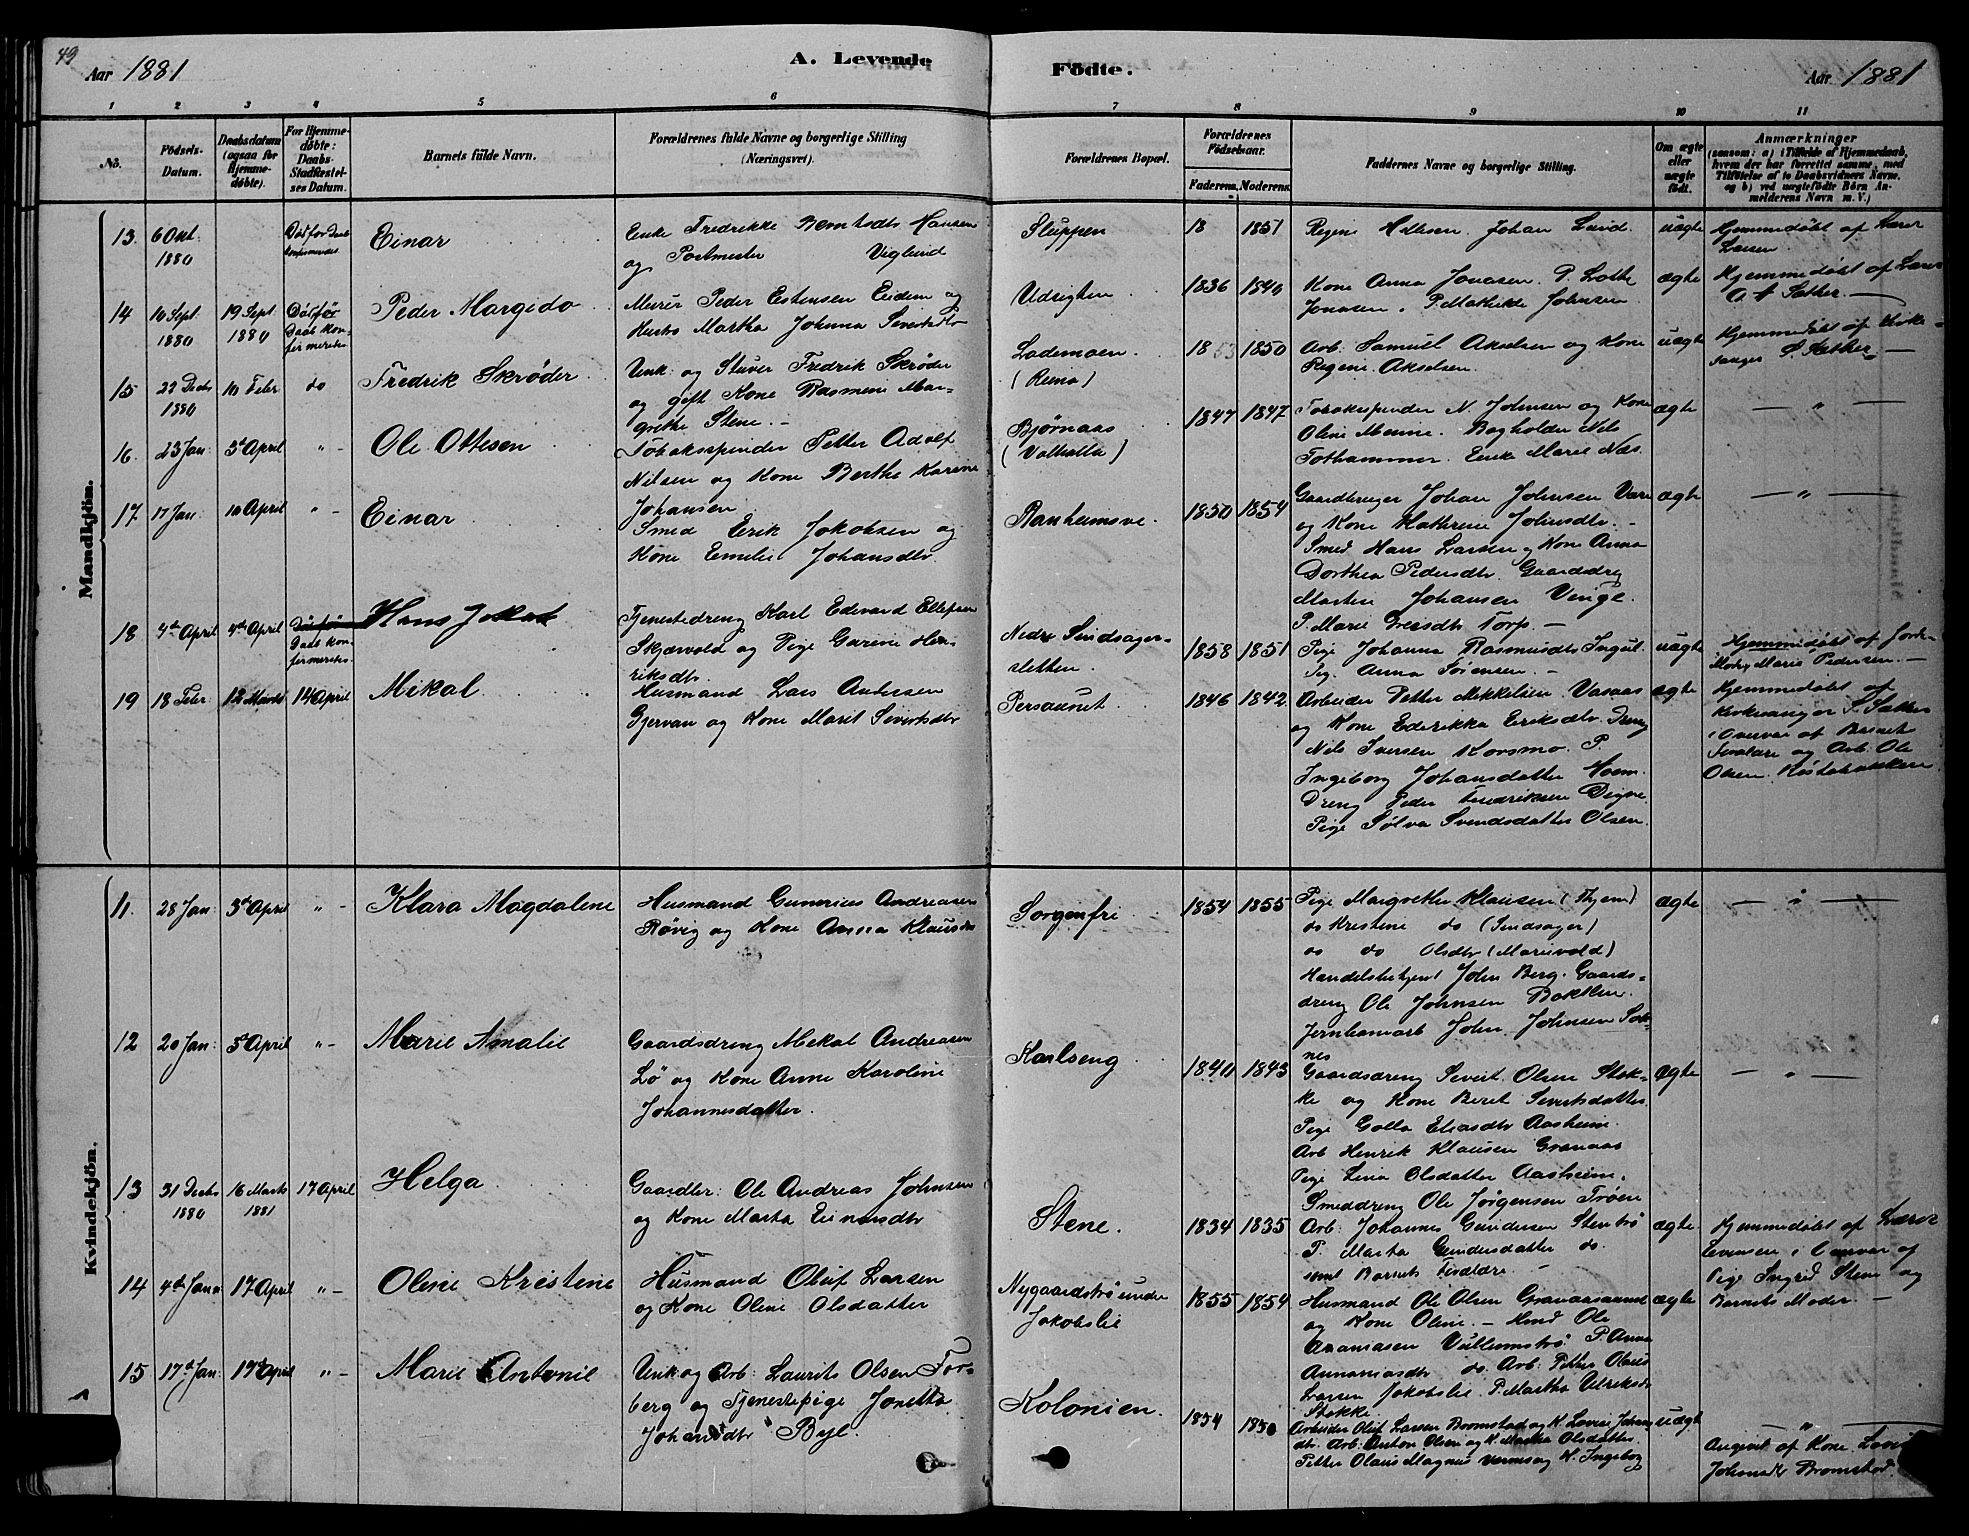 49
Aar 1881
A. Levende
Födte.
Aar 1881
1 2 3 4 5 6 7 8 9 10 11
No.
Födsels-
Datum.
Daabsdatum
(ogsaa for
Hjemme-
döbte).
For Hjemme-
döbte:
Daabs-
Stadfæstel-
ses Datum.
Barnets fulde Navn.
Forældrenes fulde Navne og borgerlige Stilling
(Næringsvei).
Forældrenes Bopæl.
Forældrenes
Födselsaar.
Faderens. Moderens.
Faddernes Navne og borgerlige Stilling.
Om ægte
eller
uægte
födt.
Anmærkninger
(saasom: a) i Tilfælde af Hjemmedaab,
hvem der har forrettet samme, med
Tilföielse af to Daabsvidners Navne,
og b) ved uægtefödte Börn An-
melderens Navn m. V.)
Mandkjön.
13. 6 Okt.
1880
Död før Daab
Einar
Enke Fredrikke Berntsdtr Hansen
og Postmester Viglund
Sluppen
18 1851
Regine Johan Lund.
uægte
Hjemmedøbt af
Larsen
14 10 Sept. 1880
19 Sept 1880
Död før
Daab kon-
firmeret
Peder Margido
Murer Peder Estensen Eidem og
Hustro Martha Johanna Sivertsdtr
Udsigten
1836 1840
Kone Anna Jonasen. P. Lotte
Jonasen. P. Mathilde Johnsen
ægte
Hjemmedøbt af Lars
Sæther
15 22 Decb 1880
10 Febr
do
Fredrik Skrøder
Unk. og Stuver Fredrik Skrøder
og gift Kone Rasmine Mar-
grethe Stene. -
Lademoen.
(Reina)
1853 1850
Arb. Samuel Akselsen og Kone
Regine Akselsen.
uægte
Hjemmedøbt af Kirke-
sanger S. Sæther
16. 23 Jan: 3die April " -
Ole Ottesen
Tobaksspinder Petter Adolf
Nilsen og Kone Berthe Karine
Johansen
Bjørnaas
(Valhalla)
1847 1847
Tobaksspinder N. Johnsen og Kone
Oline Marine. Bogholder Nils
Tothammer. Enke Marie Næs.
ægte
17 17 Jan: 10 April " -
Einar
Smed Erik Jakobsen og
Kone Emelie Johansdtr
Ranheimsve.
1850 1854
Gaardbruger Johan Johnsen Være
og Kone Kathrine Johnsdtr. -
Smed Hans Larsen og Kone Anna
Dorthea Pedersdtr. Gaardsdrg
Martin Johansen Vinge.
P. Marie Torp. -
ægte
18 4de April 4de April
Död før
Daab kon-
firmeret.
Hans Jakob
Tjenestedreng Karl Edevard Ellefsen
Skjærvold og Pige Gurine Hen-
riksdtr.
Nedre Sindsager-
sletten.
1858 1851
Pige Johanna Rasmusdtr
Pig. Anna Sørensen. -
uægte
Hjemmedøbt af Jorde-
moder Marie Pedersen. -
19 18 Febr 12 Marts 14 April
Mikal
Husmand Lars Andersen
Gjervan og Kone Marit Sivertsdtr
Persaunet
1846 1842
Arbeider Petter Mikkelsen Vasaas
og Kone Ederikka Eriksdtr. Dreng
Nils Iversen Korsmo. P.
Ingeborg Johansdatter Moen.
Dreng Peder Fredriksen Digre
Pige Sølva Svendsdatter Olsen.
ægte
Hjemmedøbt af
Kirkesanger S. Sæther
i Overvær af Barnets
Forældre og Arb. Ole
Olsen
Kvindekjön.
11. 28 Jan: 3die April " -
Klara Magdalene
Husmand Gunerius Andreasen
Røvig og Kone Anna Klausdtr
Sorgenfri
1854 1855
Pige Margrethe Klausen (Thjem)
do Kristine do (Sindsager)
do do Olsdtr (Marievold)
Handelsbetjent John Berg. Gaards-
dreng Ole Johnsen Bakklen.
Jernbanearb John Johnsen Sak-
nes
ægte
12 20 Jan: 3die April " -
Marie Amalie
Gaardsdreng Mekal Andreasen
Lø og Kone Anne Karoline
Johannesdatter.
Karlseng
1840 1843
Gaardsdreng Sivert Olsen Stok-
ke og Kone Beret Sivertsdatter
Pige Golla Eliasdtr Aasheim.
Arb Henrik Klausen Granaas
Pige Lina Olsdatter Aasheim.
Smeddreng Ole Jørgensen Trøen
ægte
13 31 Decb 1880
16 Marts 1881
17 April
Helga
Gaardbr: Ole Andreas Johnsen
og Kone Marta Einarsdtr
Stene.
1834 1835
Arb. Johannes Gundersen Stentrø
P. Marta Gundersdatter do.
samt Barnets Forældre. -
ægte
Hjemmedøbt af Lærer
Evensen i Overvær af
Pige Ingrid Stene og
Barnets Moder. -
14 4de Janr 17 April " -
Oline Kristine
Husmand Oluf Larsen
og Kone Oline Olsdatter
Nygaardstrø under
Jakobslie
1855 1854
Husmand Ole Olsen Granaasaunet
og Kone Oline. - Hmd Ole
Ananiasen Vullumstrø P. Anna
Ananiasdtr do. Arb. Petter Olaus
Larsen Jakobslie. P. Martha Ulriksdtr
Stokke
ægte
15 17de Jan: 17de April " -
Marie Antonie
Unk og Arb: Laurits Olsen Tor-
berg og Tjenestepige Jonetta
Johansdtr Bye.
Kolonien.
1854 1850
Arbeider Oluf Larsen Bromstad og K. Lovise Johans
dtr. Arb. Anton Olsen og K. Martha Olsdatter.
Petter Olaus Magnus og K. Ingeborg
uægte
Angivet af Kone Lovise
Johansdtr Bromstad.